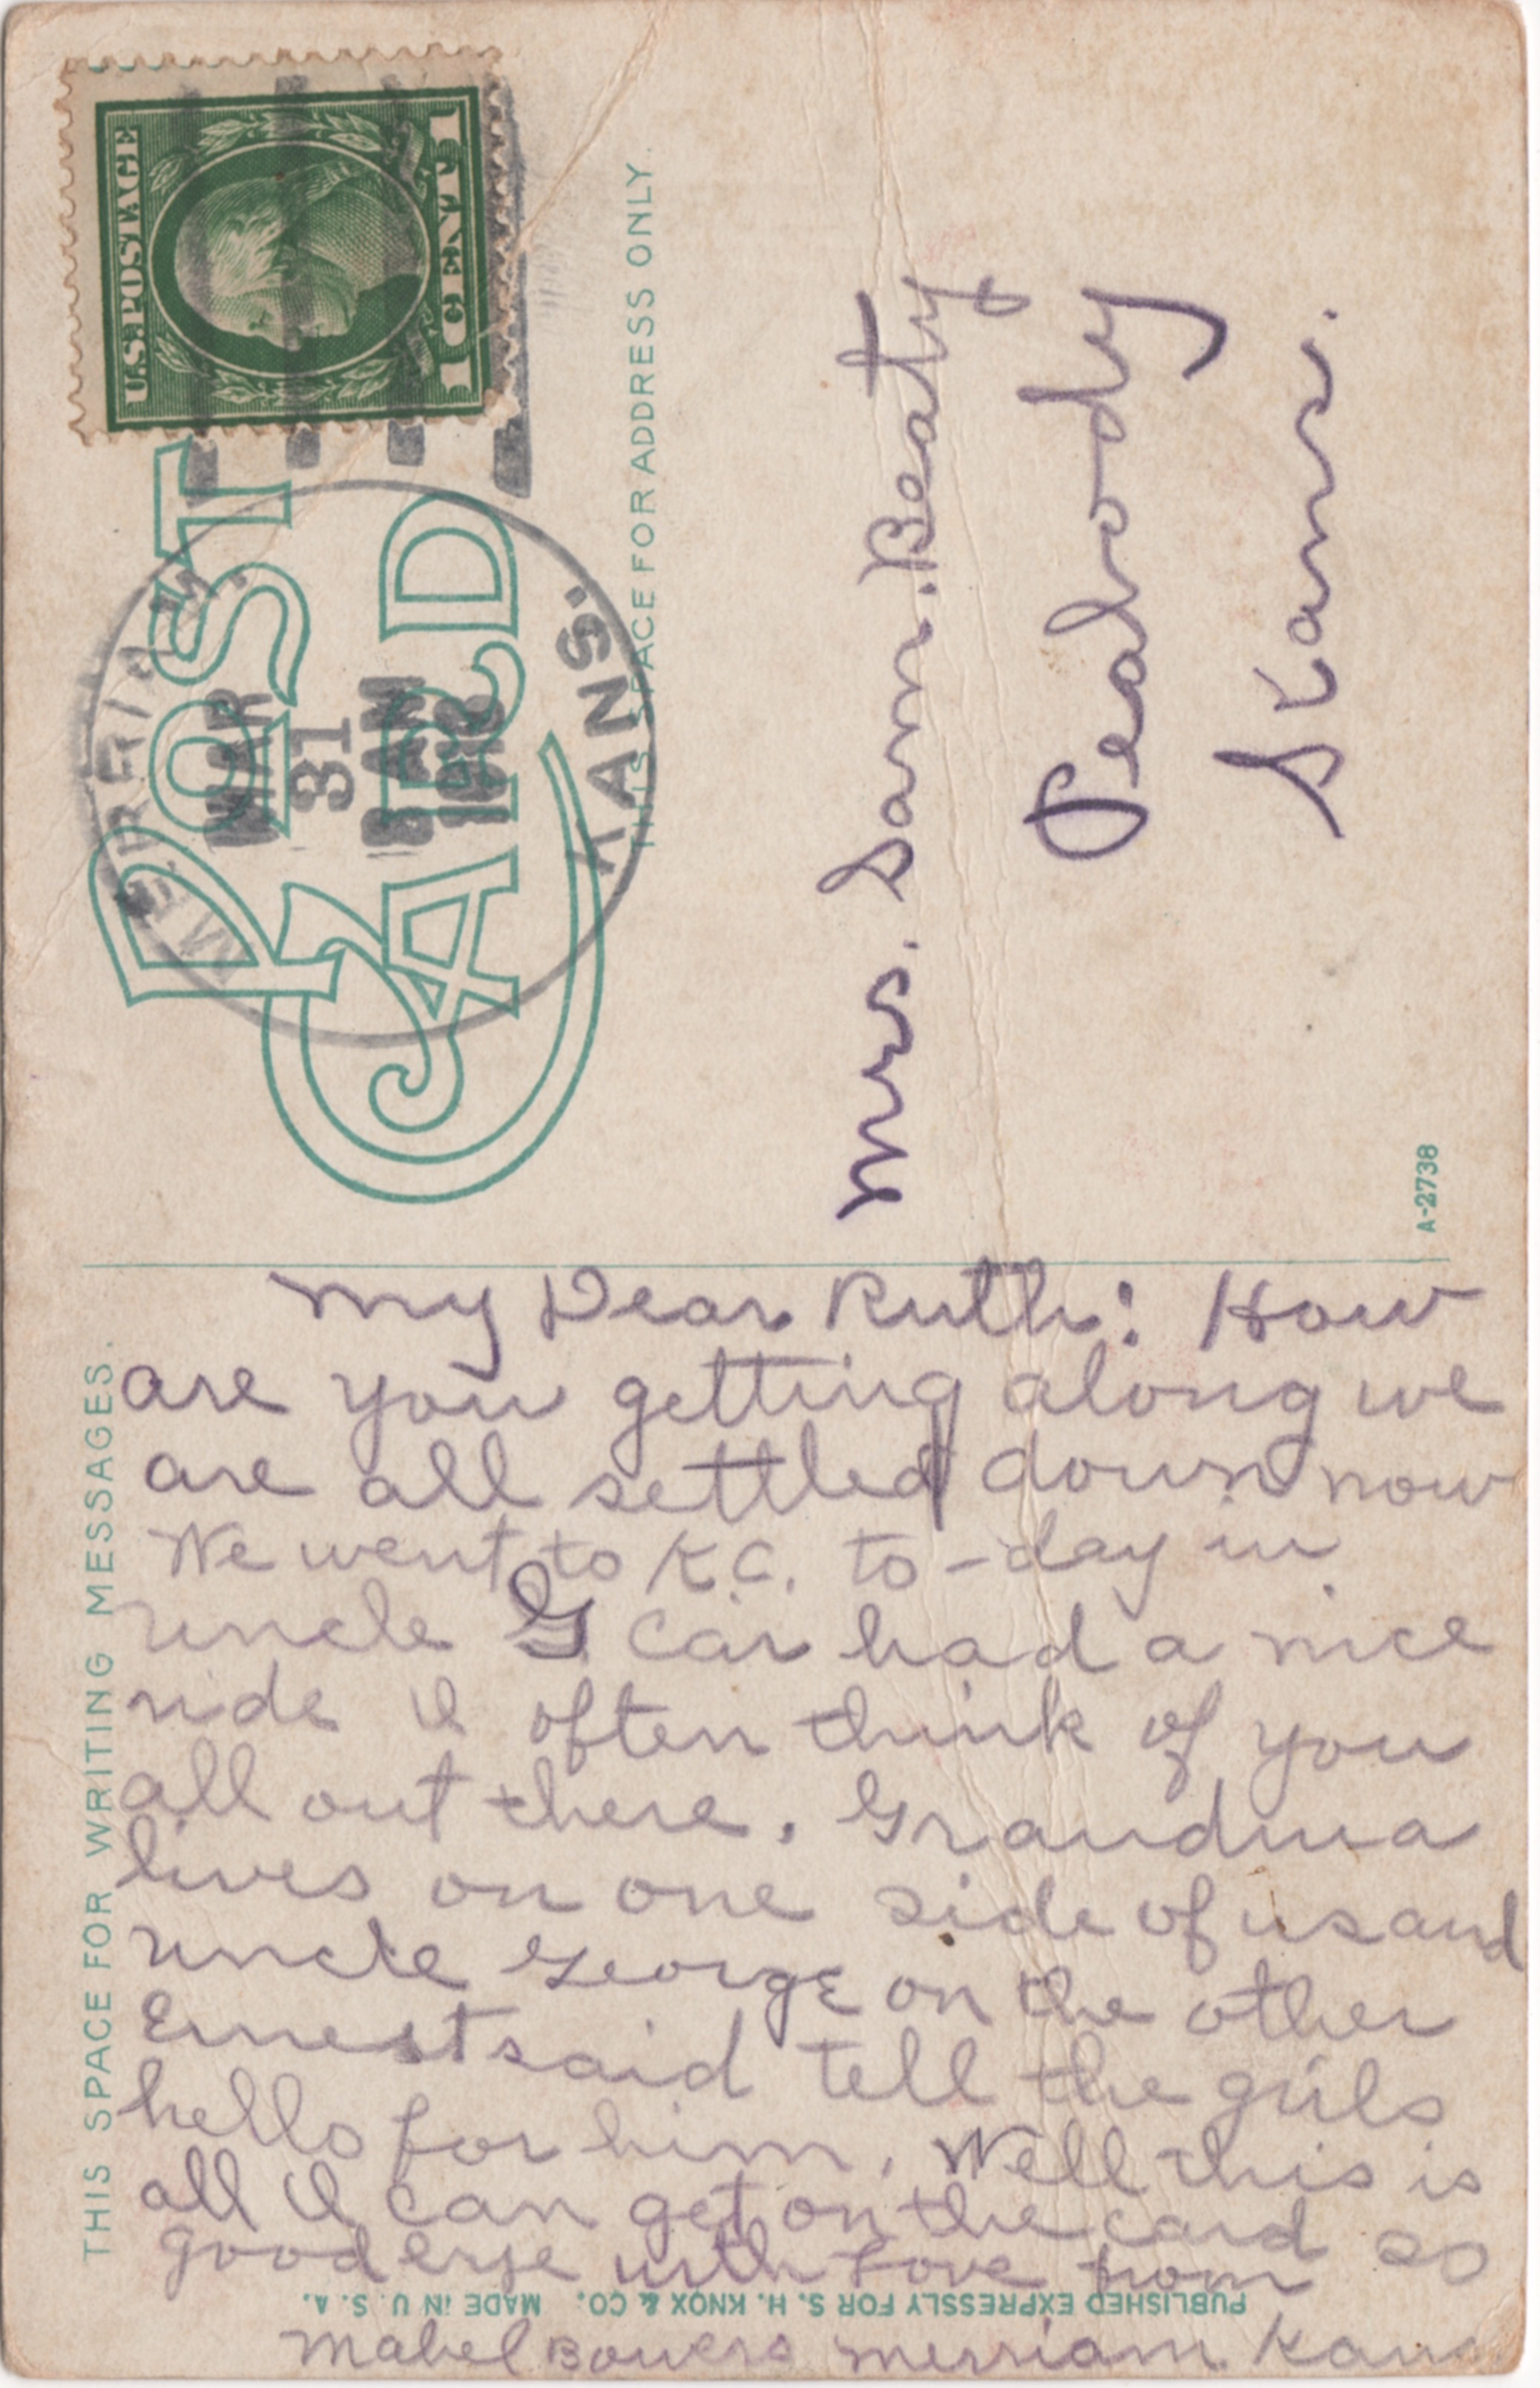 U.S. POSTAGE
1 CENT 1
POST
CARD
MERRIAM.
MAR
31
8 AM
KANS.
THIS SPACE FOR ADDRESS ONLY.
Mrs. Sam. Beaty
Peabody
Kans.
A-2738
THIS SPACE FOR WRITING MESSAGES.
My Dear Ruth: How
are you getting along we
are all settled down now
We went to K.C. to-day in
uncle G car had a nice
ride I often think of you
all out there. Grandma
lives on one side of us and
uncle George on the other
Ernest said tell the girls
hello for him. Well this is
all I can get on the card so
good bye with Love from
Mabel Bowers Merriam Kans
PUBLISHED EXPRESSLY FOR S. H. KNOX & CO. MADE IN U. S. A.